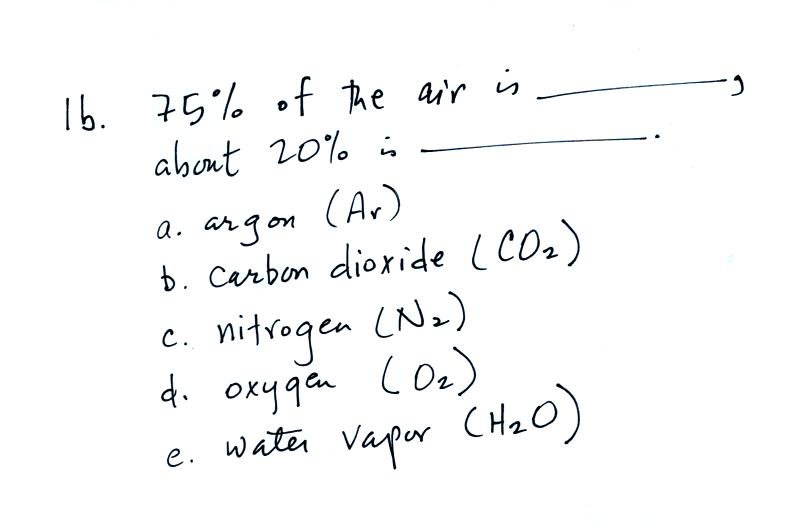 1b. 75% of the air is ________,
about 20% is ________.
a. argon (Ar)
b. carbon dioxide (CO₂)
c. nitrogen (N₂)
d. oxygen (O₂)
e. water vapor (H₂O)